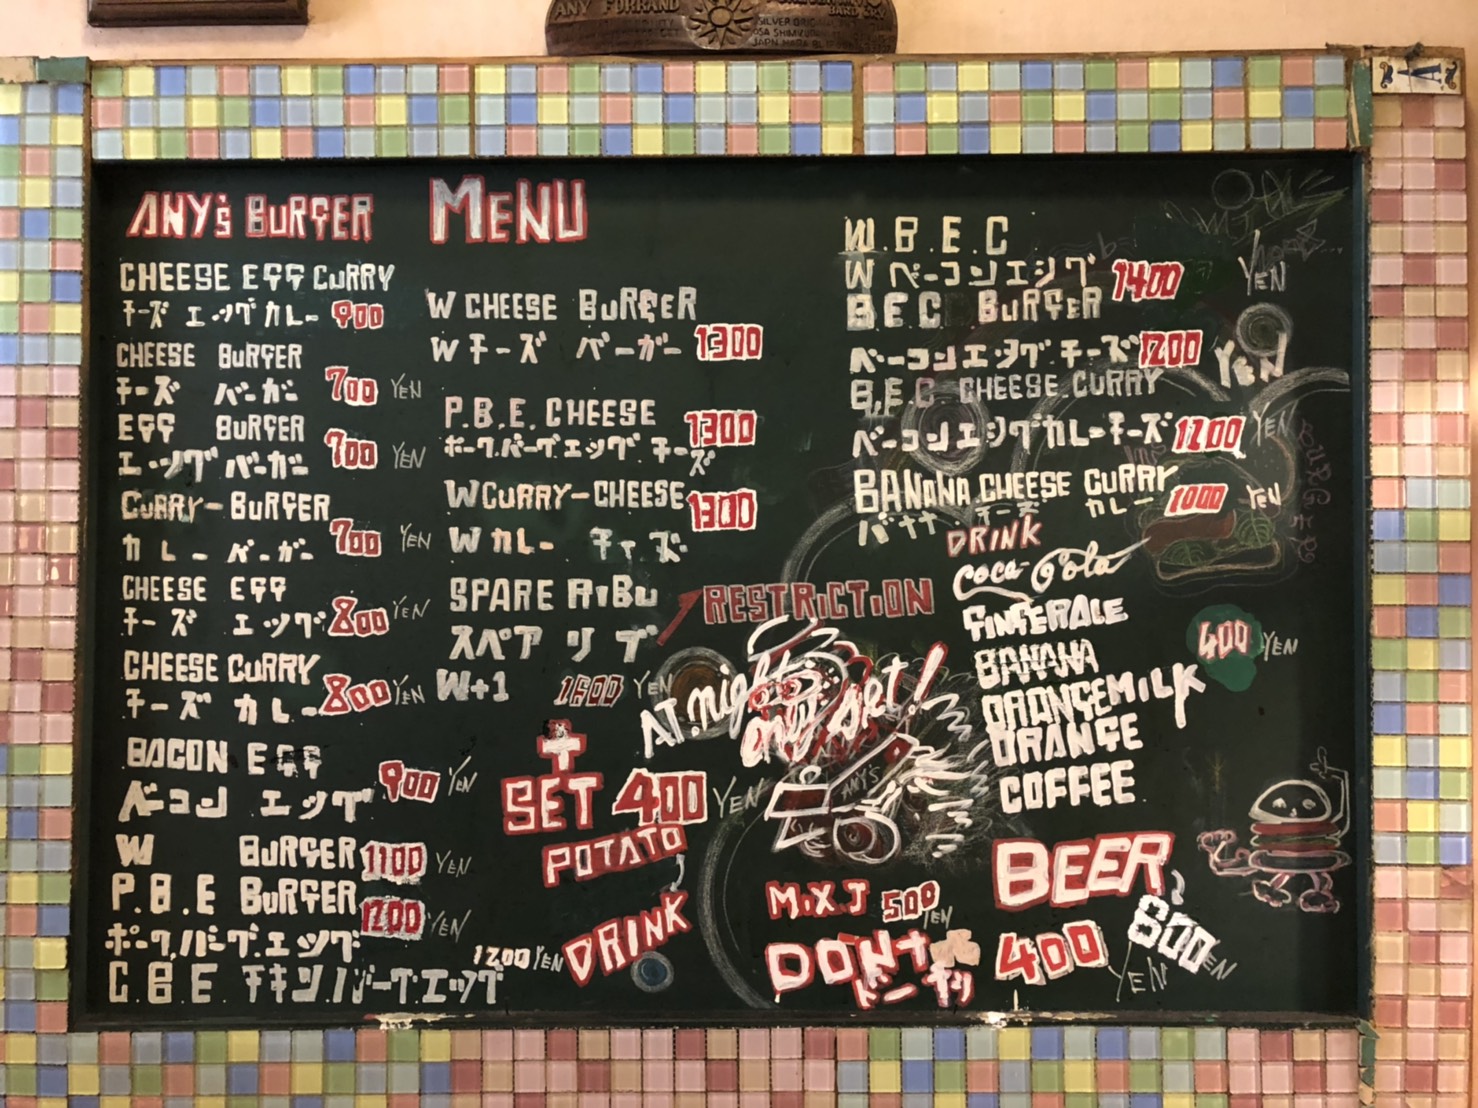 ANY FURRAND
SILVER
ANY's BURGER MENU
CHEESE EGG CURRY
チーズ エッグカレー 900
CHEESE BURGER
チーズ バーガー 700 YEN
EGG BURGER
エッグバーガー 700 YEN
CURRY-BURGER
カレーバーガー 700 YEN
CHEESE EGG
チーズ エッグ 800 YEN
CHEESE CURRY
チーズ カレー 800 YEN
BACON EGG
ベーコン エッグ 900 YEN
W BURGER 1100 YEN
P.B.E BURGER 1200 YEN
ポーク.バーグ.エッグ
C.B.E チキン.バーグ.エッグ 1200 YEN
W CHEESE BURGER
W チーズ バーガー 1300
P.B.E. CHEESE 1300
ポーク.バーグエッグ チーズ
W CURRY-CHEESE 1300
W カレー チーズ
SPARE RiBu
スペア リブ
W+1 1600 YEN
RESTRiCTiON
AT. night only set!
ANY'S
+
SET 400 YEN
POTATO
DRINK
W.B.E.C
W ベーコンエッグ 1400 YEN
B.E.C BURGER
ベーコンエッグ.チーズ 1200 YEN
B.E.C CHEESE.CURRY
ベーコンエッグカレーチーズ 1200 YEN
BANANA.CHEESE CURRY
バナナ.チーズ カレー 1000 YEN
DRINK
Coca-Cola
GINGERALE
BANANA
ORANGE MILK
ORANGE
COFFEE
400 YEN
BEER
600 YEN
MiX.J 500 YEN
DONナ 400 YEN